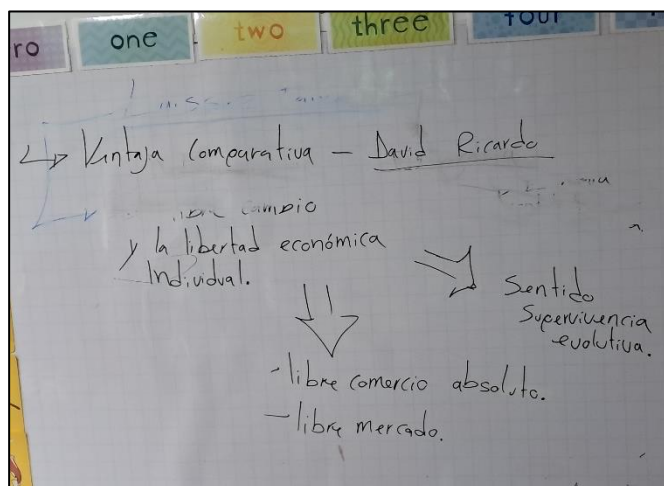 ro one two three four
Ventaja Comparativa – David Ricardo
libre cambio
y la libertad económica
Individual.
Sentido
Supervivencia
evolutiva.
- libre comercio absoluto.
- libre mercado.